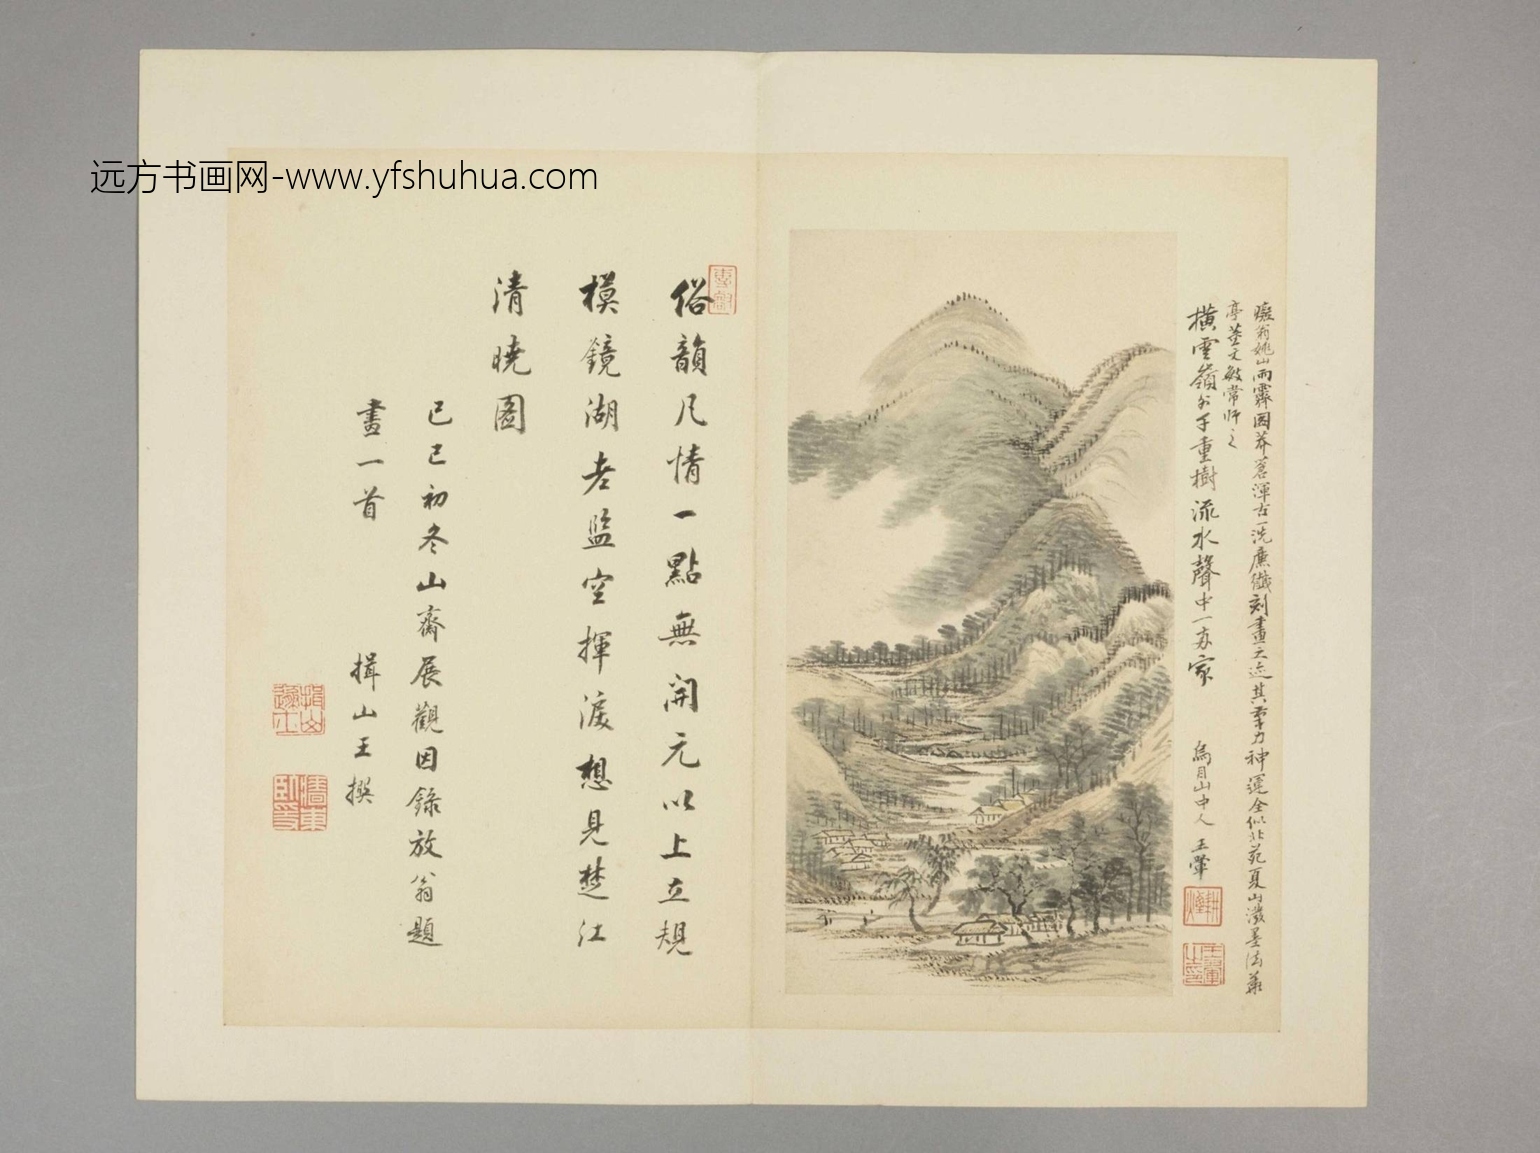 远方书画网-www.yfshuhua.com
癡翁姚山雨霽圖莽蒼渾古一洗廉纖刻畫之迹其筆力神運全似北苑夏山潑墨法華
亭董文敏常師之
橫雲嶺外千重樹流水聲中一兩家
烏目山中人 王翬
俗韻凡情一點無開元以上立規
模鏡湖老監空揮淚想見楚江
清曉圖
己巳初冬山齋展觀因錄放翁題
畫一首
揖山王撰